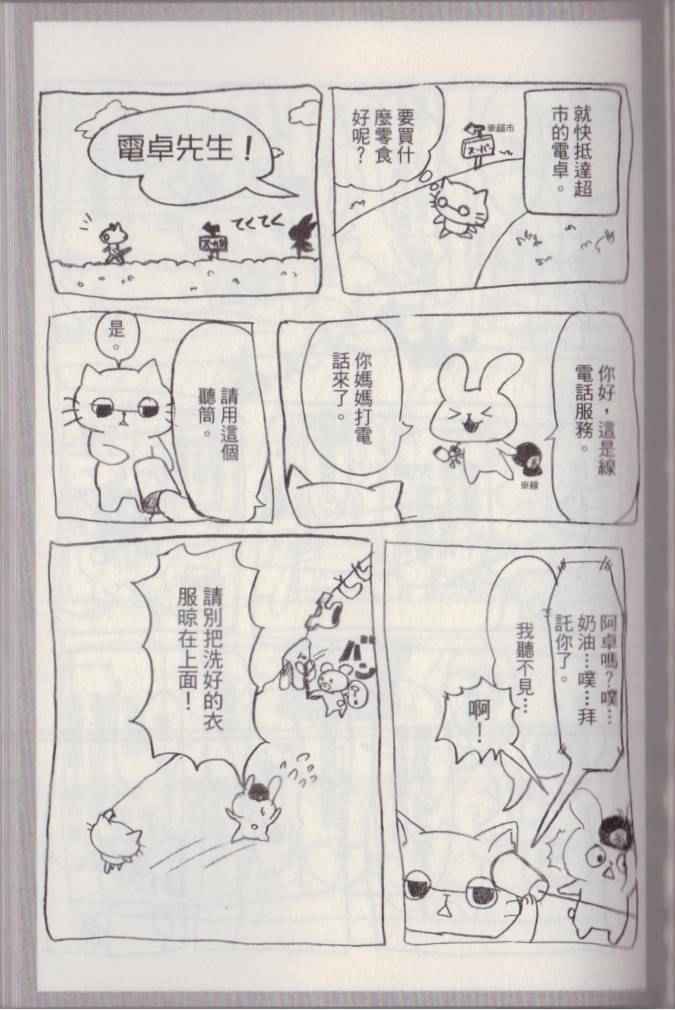 就快抵達超
市的電卓。
※超市
スーパー
要買什
麼零食
好呢？
電卓先生！
てくてく
你好，這是線
電話服務。
※線
你媽媽打電
話來了。
請用這個
聽筒。
是。
阿卓嗎？噗…
奶油…噗…拜
託你了。
我聽不見…
啊！
請別把洗好的衣
服晾在上面！